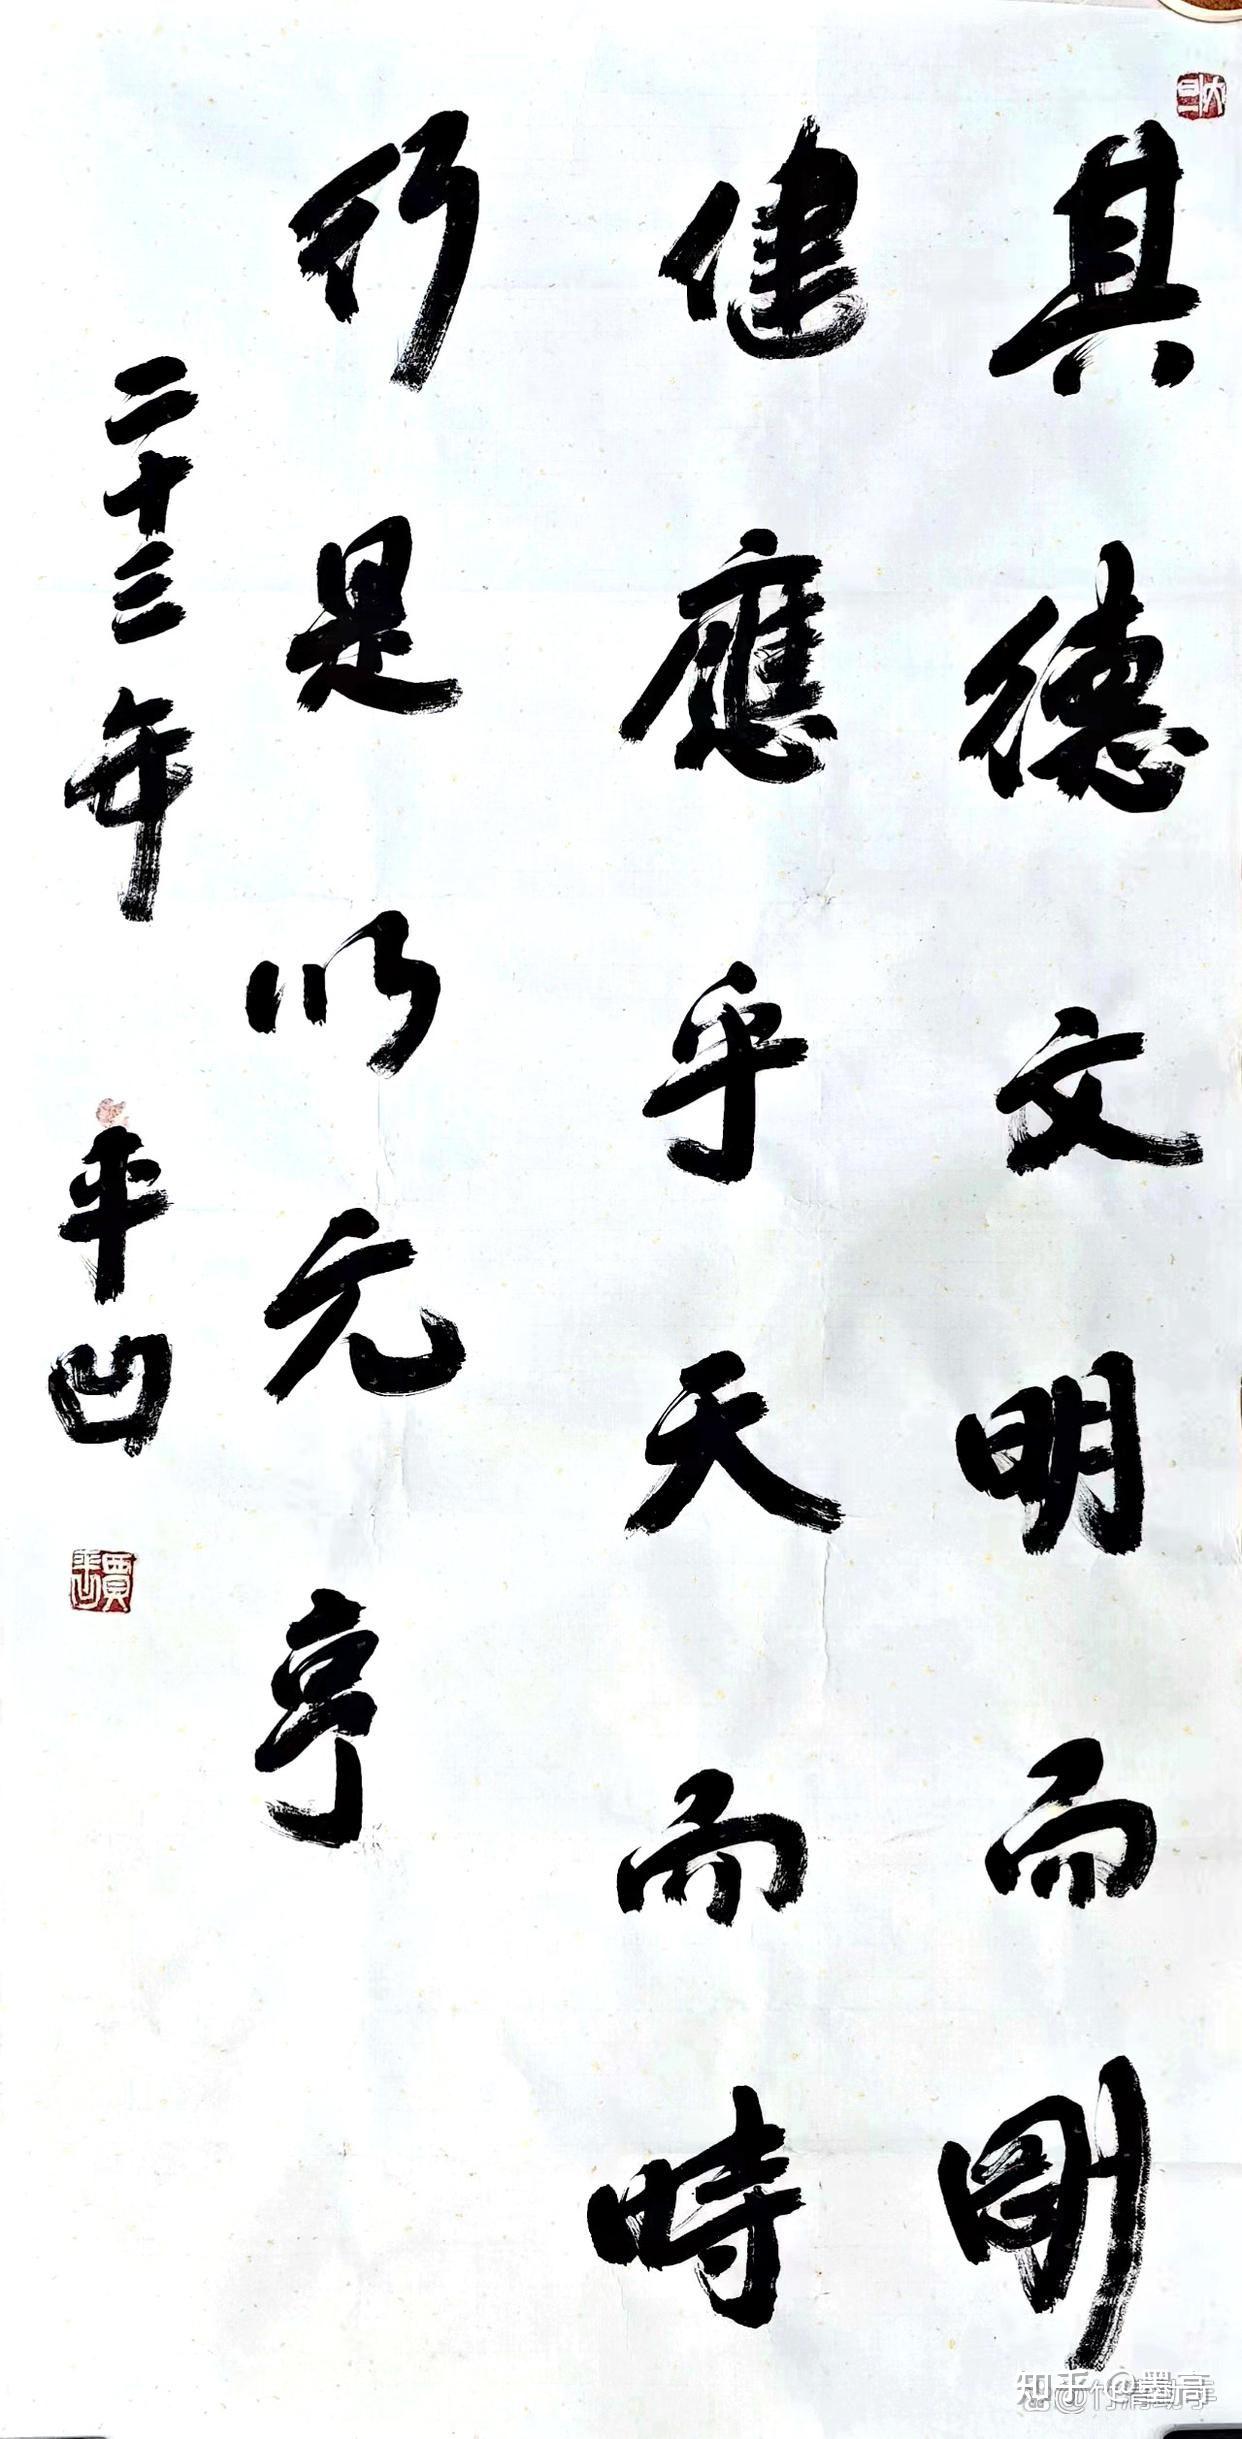 其德文明而剛
健應乎天而時
行是以元亨
二十三年 平凹
賈平凹
知乎 @墨哥